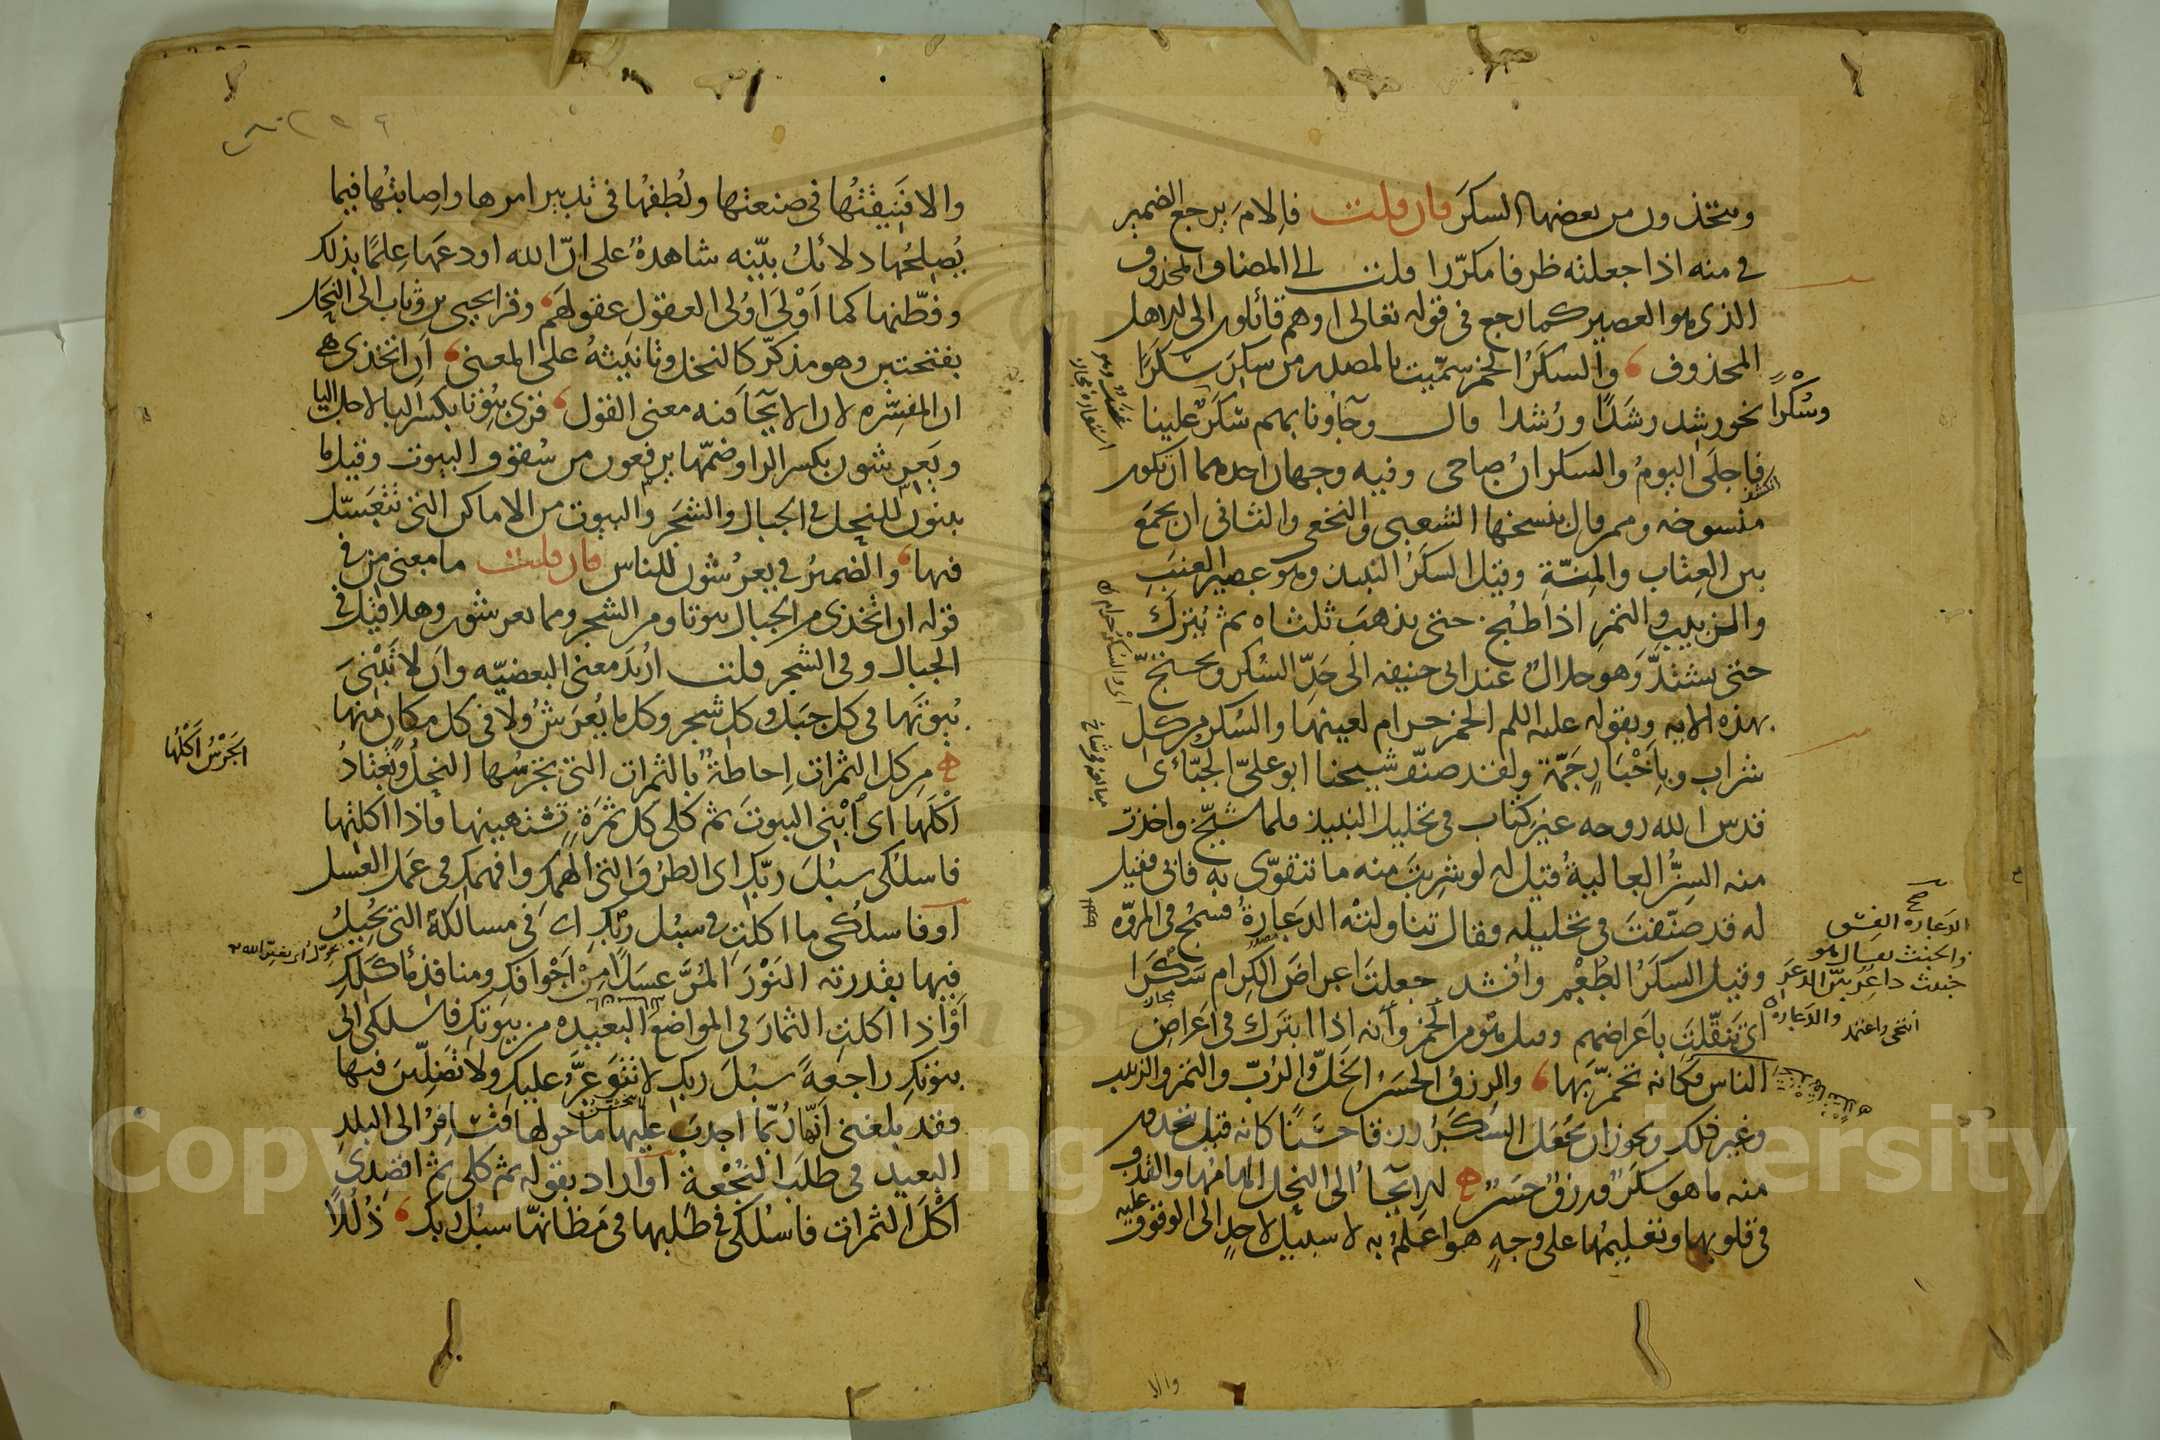 ويتخذون من بعضها السكر فان قلت فالام يرجع الضمير
في منه اذا جعلته ظرفا مكررا قلت الى المضاف المحذوف
الذي هو العصير كما رجع في قوله تعالى او هم قائلون الى الاهل
المحذوف والسكَر الخمر سمّيت بالمصدر من سكِر سَكَرًا
وسُكْرًا نحو رشد رشَدًا ورُشدا قال وجاؤنا بهم سَكَرٌ علينا
فاجلَى اليومُ والسكرانُ صاحى وفيه وجهان احدهما ان تكون
منسوخه وممن قال بنسخها الشعبي والنخعي والثاني ان يجمَع
بين العِتاب والمِنّةِ وقيل السكَرُ النبيذ وهو عصير العنبِ
والزبيبِ والتمرِ اذا طُبخ حتى يذهبَ ثلثاه ثم يُترَك
حتى يشتدَّ وهو حلالٌ عند ابى حنيفه الى حَدّ السُكر ويحتج
بهذه الايه وبقوله عليه السلم الخمر حرام لعينها والسُكر من كل
شراب وبِاَخْبَارٍ جَمّة ولقد صنّف شيخنا ابو عليّ الجبّائى
قدس الله روحه غير كتاب في تحليل النبيذ فلما شيّخ واخذت
منه السِنُّ العاليةُ قيل له لو شربتَ منه ما تتقوّى به فابى فقيل
له قد صنّفتَ في تحليله فقال تناولتْه الدعارةُ فسمُج في المروّه
وقيل السكَرُ الطُعْم وانُشد جعلتَ اعراضَ الكِرام سَكَرا
اى تنقّلتَ باعراضهم وقيل هو من الخمر وانه اذا ابتَرَك في اعراض
الناس فكانه تخمّر بها والرزقُ الحسَنُ الخَلُّ والرُبّ والتمر والزبيب
وغير ذلك ويجوز ان يجُعَل السَكَرُ رزقا حسَنًا كانه قيل تتخذون
منه ما هو سكَرٌ ورزقٌ حَسَنٌ الايحاُ الى النحل الهامُها والقذف
في قلوبها وتعليمُها على وجهٍ هو اعلمُ به لا سبيل لاحدٍ الى الوقوف عليه
الدعارة الفسق
والخبث يقال هو
خبيث داعر بيّن الدعَر
والدعارة
انتحى واعتمد
والا
والا فنَيقَتُها في صنعتها ولُطفُها في تدبير امرها واِصابتُها فيما
يُصلحُها دلائلُ بيّنه شاهدةٌ على انّ الله اودعَها عِلمًا بذلك
وفطّنها كما اَوْلَى اُولى العقول عقولهَم وقرا يحيى بن وثاب الى النحَل
بفتحتين وهو مذكّر كالنخل وتانيثهُ على المعنى اَنِ اتخذى هي
ان المفسِّره لان الايحآ فيه معنى القول قرى بِيُوتا بكسر البا لاجل اليا
ويَعرِشون بكسر الرا وضمّها يرفعون من سُقوف البيوت وقيل ما
يبنون للنحل في الجبال والشجَر والبيوت من الاماكن التي تتَعَسّل
فيها والضميرُ في يعرُشون للناس فان قلت ما معنى مِن في
قوله ان اتخذى من الجبال بيوتا ومن الشجر ومما يعرشون وهلا قيل في
الجبال وفى الشجر قلت ارُيدَ معنى البعضيّه واَن لا تَبْنىَ
بُيوتَها في كل جَبَل وكل شجر وكل ما يُعرَشُ ولا في كل مكانٍ منها
من كل الثمرات اِحاطةٌ بالثمرات التي تجرُسها النحلُ وتعتادُ
اكْلَها اى ابْنى البيوتَ ثم كلى كل ثمَرَةٍ تشتهينها فاذا اكلتِها
فاسلكى سبُلَ ربّكِ اى الطرُقَ التي الهمكِ وافهمكِ في عَمل العَسل
اَوفاسلُكى ما اكلتِ في سبُل ربّكِ اى في مسالكه التي يحُيلُ
فيها بقدرته النَوْرَ المُرَّ عسَلاً مِنْ اَجْوافكِ ومنافذِ مأكَلكِ
اَوْ اذا اكلتِ الثمارَ في المواضع البعيده من بيوتكِ فاسلكى الى
بيوتكِ راجعةً سبُلَ ربكِ لا تتوعَرُ عليكِ ولا تَضِلّينَ فيها
فقد بلغنى انّها رُبّما اجدبَ عليها ما حولها فتُسافرُ الى البلدِ
البعيد في طلَب النُجْعة اَو اراد بقوله ثم كلى ثم اقصدى
اكْلَ الثمرات فاسُلكى في طلبها في مَظانّها سبُل ربك ذُلُلاً
الجَرْسُ اَكْلُها
Copyright © King Saud University
1957